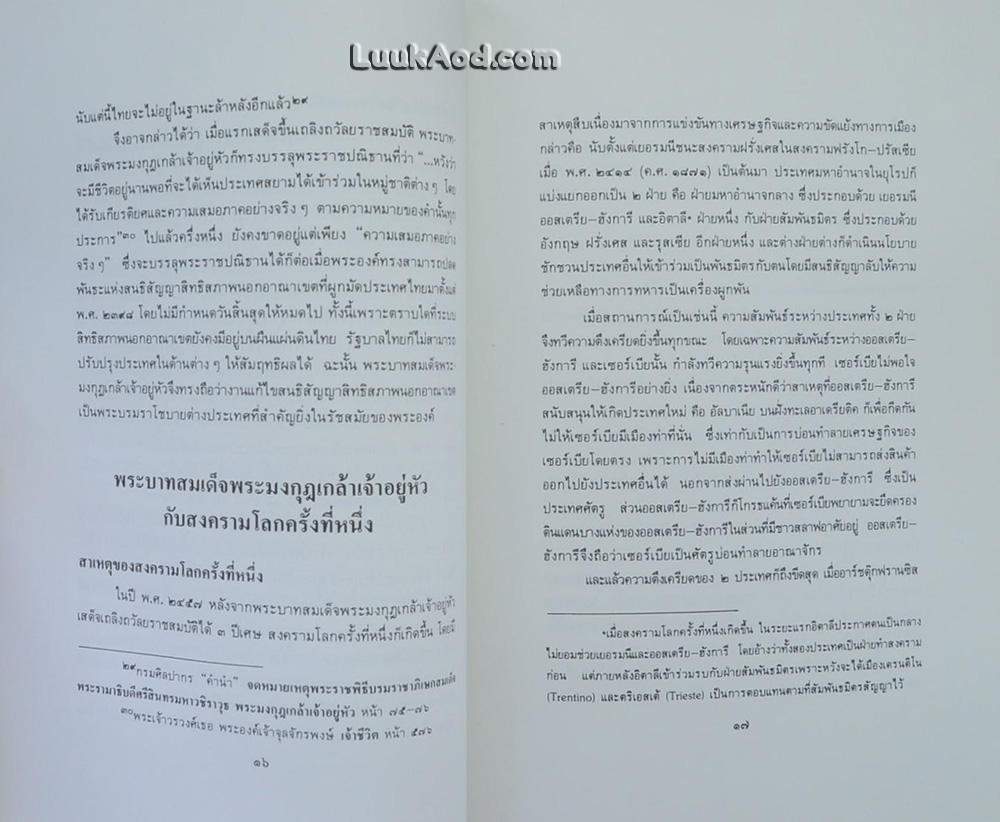 LuukAod.com
นับแต่นี้ไทยจะไม่อยู่ในฐานะล้าหลังอีกแล้ว๒๙
จึงอาจกล่าวได้ว่า เมื่อแรกเสด็จขึ้นเถลิงถวัลยราชสมบัติ พระบาท-
สมเด็จพระมงกุฎเกล้าเจ้าอยู่หัวก็ทรงบรรลุพระราชปณิธานที่ว่า “...หวังว่า
จะมีชีวิตอยู่นานพอที่จะได้เห็นประเทศสยามได้เข้าร่วมในหมู่ชาติต่าง ๆ โดย
ได้รับเกียรติยศและความเสมอภาคอย่างจริง ๆ ตามความหมายของคำนั้นทุก
ประการ”๓๐ ไปแล้วครึ่งหนึ่ง ยังคงขาดอยู่แต่เพียง “ความเสมอภาคอย่าง
จริง ๆ” ซึ่งจะบรรลุพระราชปณิธานได้ก็ต่อเมื่อพระองค์ทรงสามารถปลด
พันธะแห่งสนธิสัญญาสิทธิสภาพนอกอาณาเขตที่ผูกมัดประเทศไทยมาตั้งแต่
พ.ศ. ๒๓๙๘ โดยไม่มีกำหนดวันสิ้นสุดให้หมดไป ทั้งนี้เพราะตราบใดที่ระบบ
สิทธิสภาพนอกอาณาเขตยังคงมีอยู่บนผืนแผ่นดินไทย รัฐบาลไทยก็ไม่สามารถ
ปรับปรุงประเทศในด้านต่าง ๆ ให้สัมฤทธิผลได้ ฉะนั้น พระบาทสมเด็จพระ-
มงกุฎเกล้าเจ้าอยู่หัวจึงทรงถือว่างานแก้ไขสนธิสัญญาสิทธิสภาพนอกอาณาเขต
เป็นพระบรมราโชบายต่างประเทศที่สำคัญยิ่งในรัชสมัยของพระองค์
พระบาทสมเด็จพระมงกุฎเกล้าเจ้าอยู่หัว
กับสงครามโลกครั้งที่หนึ่ง
สาเหตุของสงครามโลกครั้งที่หนึ่ง
ในปี พ.ศ. ๒๔๕๗ หลังจากพระบาทสมเด็จพระมงกุฎเกล้าเจ้าอยู่หัว
เสด็จเถลิงถวัลยราชสมบัติได้ ๓ ปีเศษ สงครามโลกครั้งที่หนึ่งก็เกิดขึ้น โดยมี
๒๙กรมศิลปากร “คำนำ” จดหมายเหตุพระราชพิธีบรมราชาภิเษกสมเด็จ
พระรามาธิบดีศรีสินทรมหาวชิราวุธ พระมงกุฎเกล้าเจ้าอยู่หัว หน้า ๗๕-๗๖
๓๐พระเจ้าวรวงศ์เธอ พระองค์เจ้าจุลจักรพงษ์ เจ้าชีวิต หน้า ๕๗๖
๑๖
สาเหตุสืบเนื่องมาจากการแข่งขันทางเศรษฐกิจและความขัดแย้งทางการเมือง
กล่าวคือ นับตั้งแต่เยอรมนีชนะสงครามฝรั่งเศสในสงครามฟรังโก-ปรัสเซีย
เมื่อ พ.ศ. ๒๔๑๔ (ค.ศ. ๑๘๗๑) เป็นต้นมา ประเทศมหาอำนาจในยุโรปก็
แบ่งแยกออกเป็น ๒ ฝ่าย คือ ฝ่ายมหาอำนาจกลาง ซึ่งประกอบด้วย เยอรมนี
ออสเตรีย-ฮังการี และอิตาลี* ฝ่ายหนึ่ง กับฝ่ายสัมพันธมิตร ซึ่งประกอบด้วย
อังกฤษ ฝรั่งเศส และรุสเซีย อีกฝ่ายหนึ่ง และต่างฝ่ายต่างก็ดำเนินนโยบาย
ชักชวนประเทศอื่นให้เข้าร่วมเป็นพันธมิตรกับตนโดยมีสนธิสัญญาลับให้ความ
ช่วยเหลือทางการทหารเป็นเครื่องผูกพัน
เมื่อสถานการณ์เป็นเช่นนี้ ความสัมพันธ์ระหว่างประเทศทั้ง ๒ ฝ่าย
จึงทวีความตึงเครียดยิ่งขึ้นทุกขณะ โดยเฉพาะความสัมพันธ์ระหว่างออสเตรีย-
ฮังการี และเซอร์เบียนั้น กำลังทวีความรุนแรงยิ่งขึ้นทุกที เซอร์เบียไม่พอใจ
ออสเตรีย-ฮังการีอย่างยิ่ง เนื่องจากตระหนักดีว่าสาเหตุที่ออสเตรีย-ฮังการี
สนับสนุนให้เกิดประเทศใหม่ คือ อัลบาเนีย บนฝั่งทะเลอาเดรียติค ก็เพื่อกีดกัน
ไม่ให้เซอร์เบียมีเมืองท่าที่นั่น ซึ่งเท่ากับเป็นการบ่อนทำลายเศรษฐกิจของ
เซอร์เบียโดยตรง เพราะการไม่มีเมืองท่าทำให้เซอร์เบียไม่สามารถส่งสินค้า
ออกไปยังประเทศอื่นได้ นอกจากส่งผ่านไปยังออสเตรีย-ฮังการี ซึ่งเป็น
ประเทศศัตรู ส่วนออสเตรีย-ฮังการีก็โกรธแค้นที่เซอร์เบียพยายามจะยึดครอง
ดินแดนบางแห่งของออสเตรีย-ฮังการีในส่วนที่มีชาวสลาฟอาศัยอยู่ ออสเตรีย-
ฮังการีจึงถือว่าเซอร์เบียเป็นศัตรูบ่อนทำลายอาณาจักร
และแล้วความตึงเครียดของ ๒ ประเทศก็ถึงขีดสุด เมื่ออาร์ชดุ๊กฟรานซิส
*เมื่อสงครามโลกครั้งที่หนึ่งเกิดขึ้น ในระยะแรกอิตาลีประกาศตนเป็นกลาง
ไม่ยอมช่วยเยอรมนีและออสเตรีย-ฮังการี โดยอ้างว่าทั้งสองประเทศเป็นฝ่ายทำสงคราม
ก่อน แต่ภายหลังอิตาลีเข้าร่วมรบกับฝ่ายสัมพันธมิตรเพราะหวังจะได้เมืองเตรนติโน
(Trentino) และตริเอสเต้ (Trieste) เป็นการตอบแทนตามที่สัมพันธมิตรสัญญาไว้
๑๗